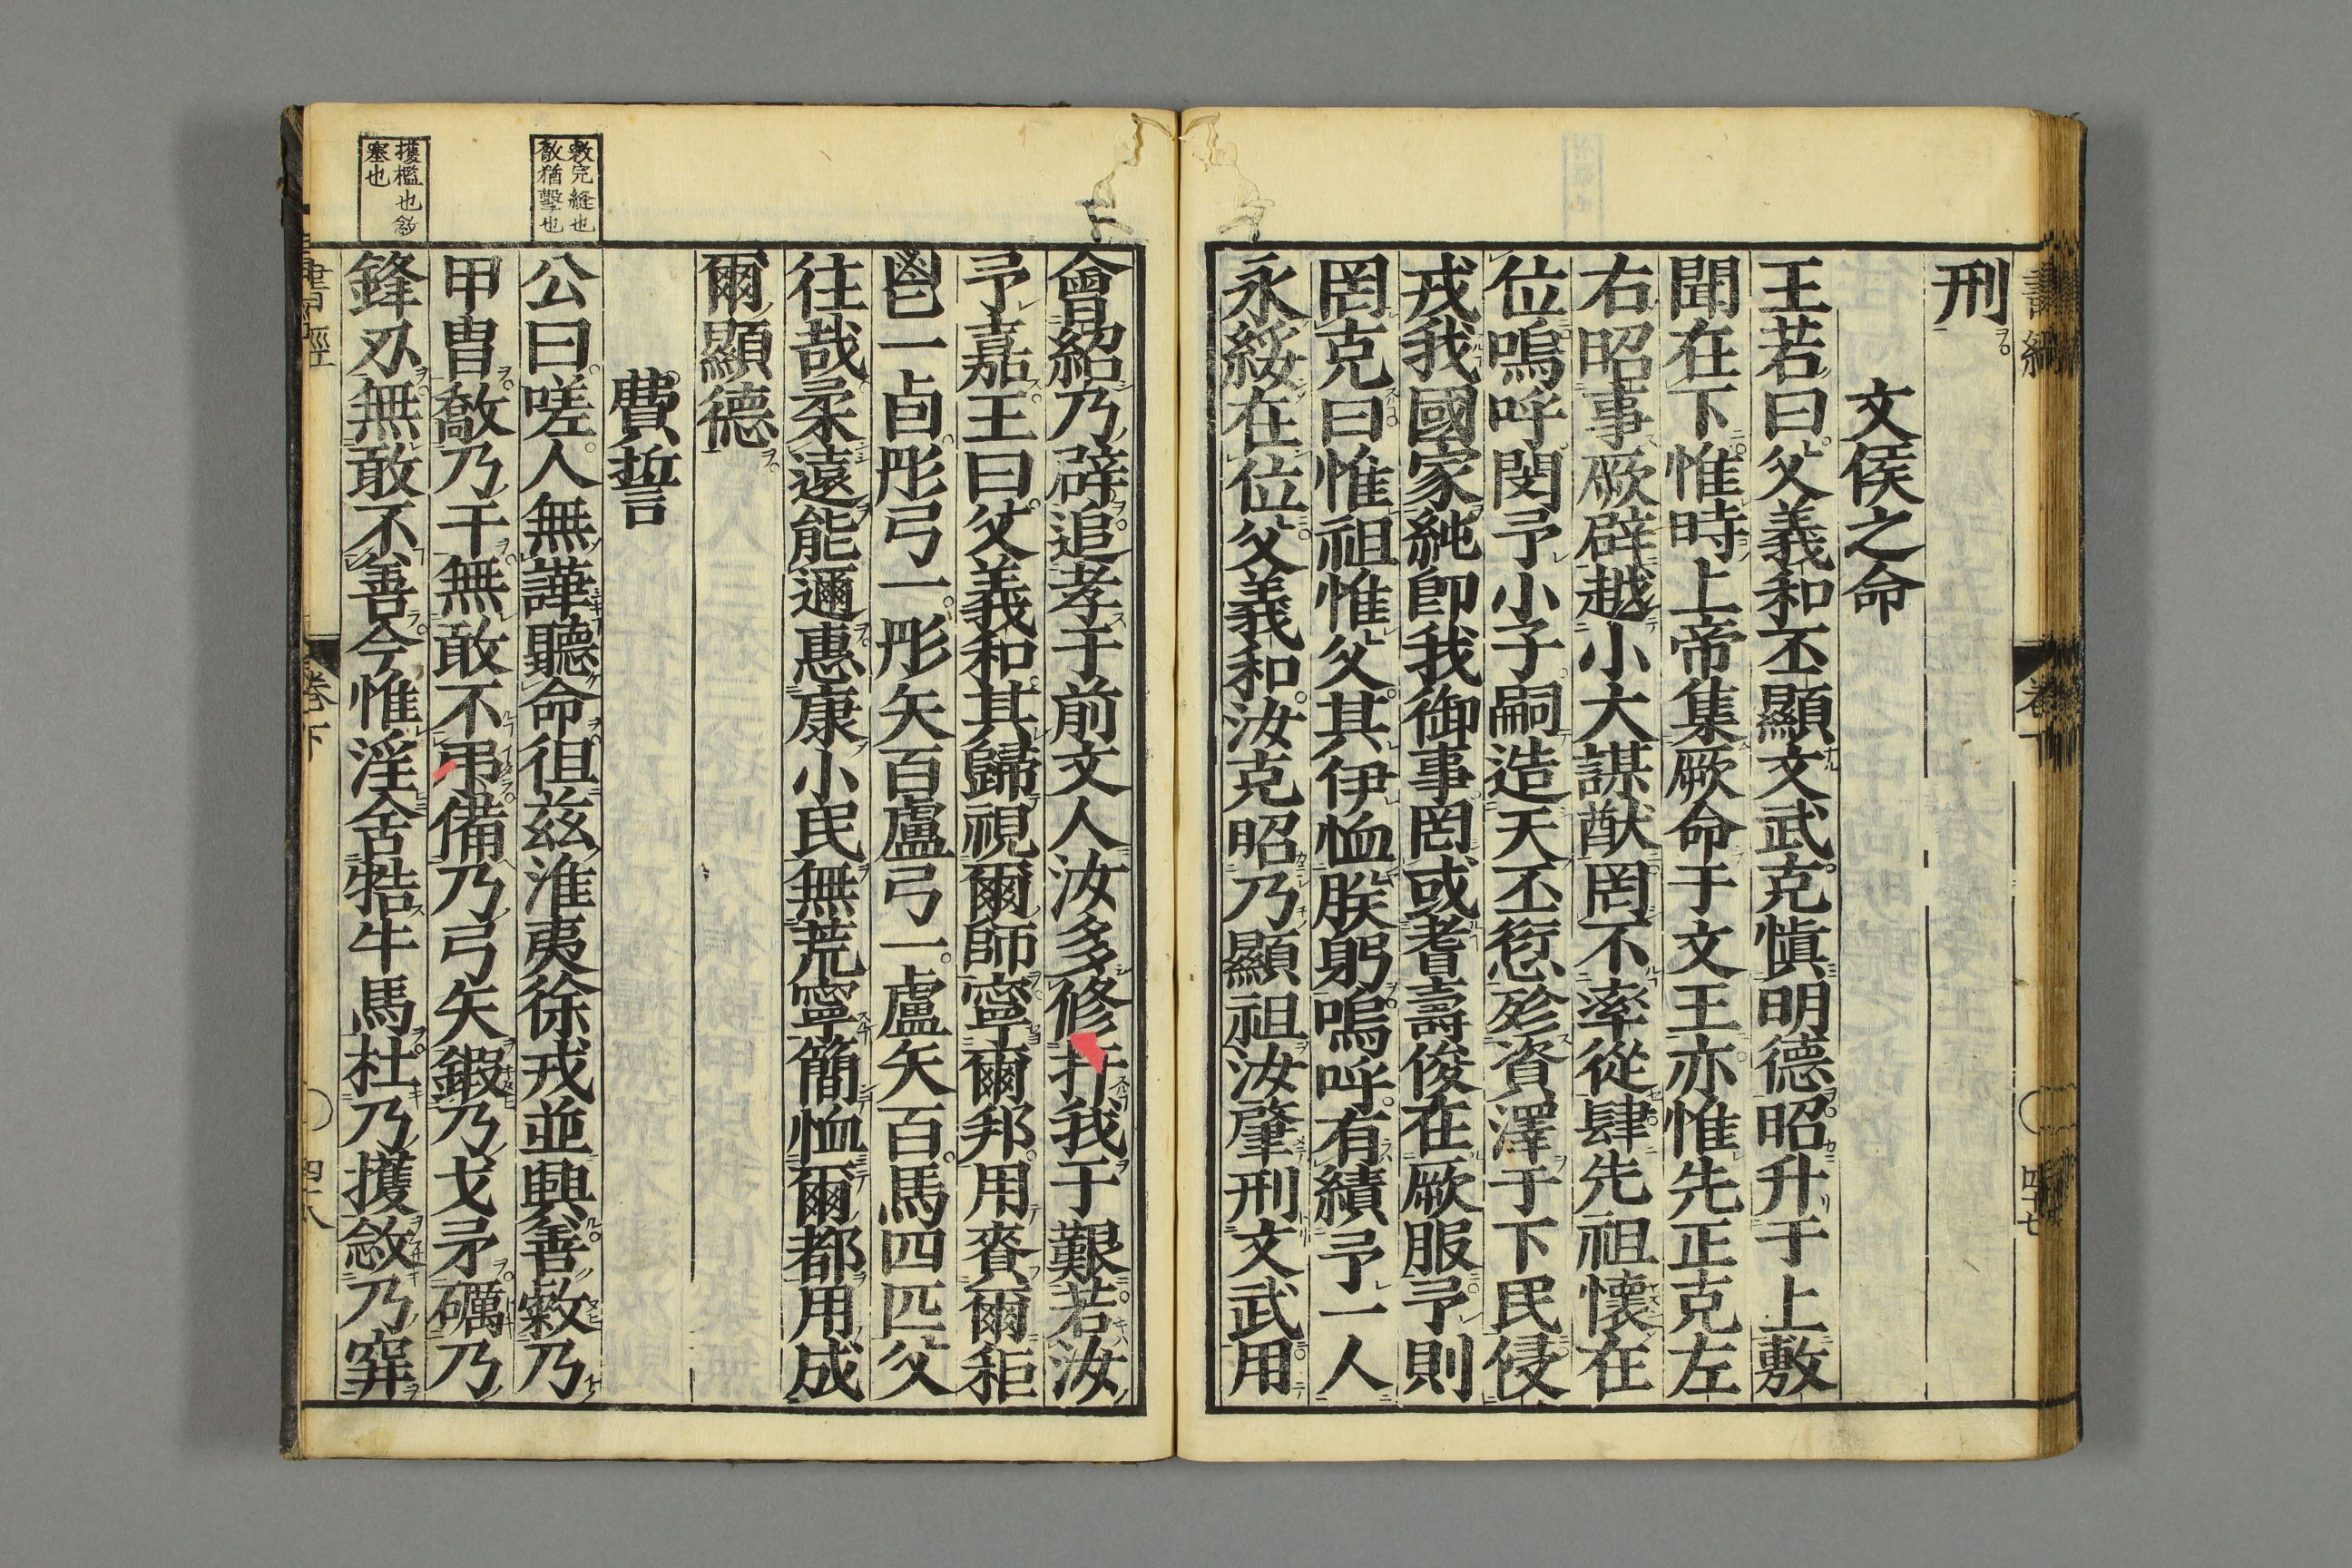 書經
卷下
四十七
刑
文侯之命
王若曰父義和丕顯文武克愼明德昭升于上敷
聞在下惟時上帝集厥命于文王亦惟先正克左
右昭事厥辟越小大謀猷罔不率從肆先祖懷在
位嗚呼閔予小子嗣造天丕愆殄資澤于下民侵
戎我國家純卽我御事罔或耆壽俊在厥服予則
罔克曰惟祖惟父其伊恤朕躬嗚呼有績予一人
永綏在位父義和汝克昭乃顯祖汝肇刑文武用
會紹乃辟追孝于前文人汝多修扞我于艱若汝
予嘉王曰父義和其歸視爾師寧爾邦用賚爾秬
鬯一卣彤弓一彤矢百盧弓一盧矢百馬四匹父
往哉柔遠能邇惠康小民無荒寧簡恤爾都用成
爾顯德
費誓
敹完縫也
敿猶擊也
公曰嗟人無譁聽命徂茲淮夷徐戎並興善敹乃
甲冑敿乃干無敢不弔備乃弓矢鍛乃戈矛礪乃
擭檻也敜
塞也
鋒刃無敢不善今惟淫舍牿牛馬杜乃擭敜乃穽
書經
卷下
四十八